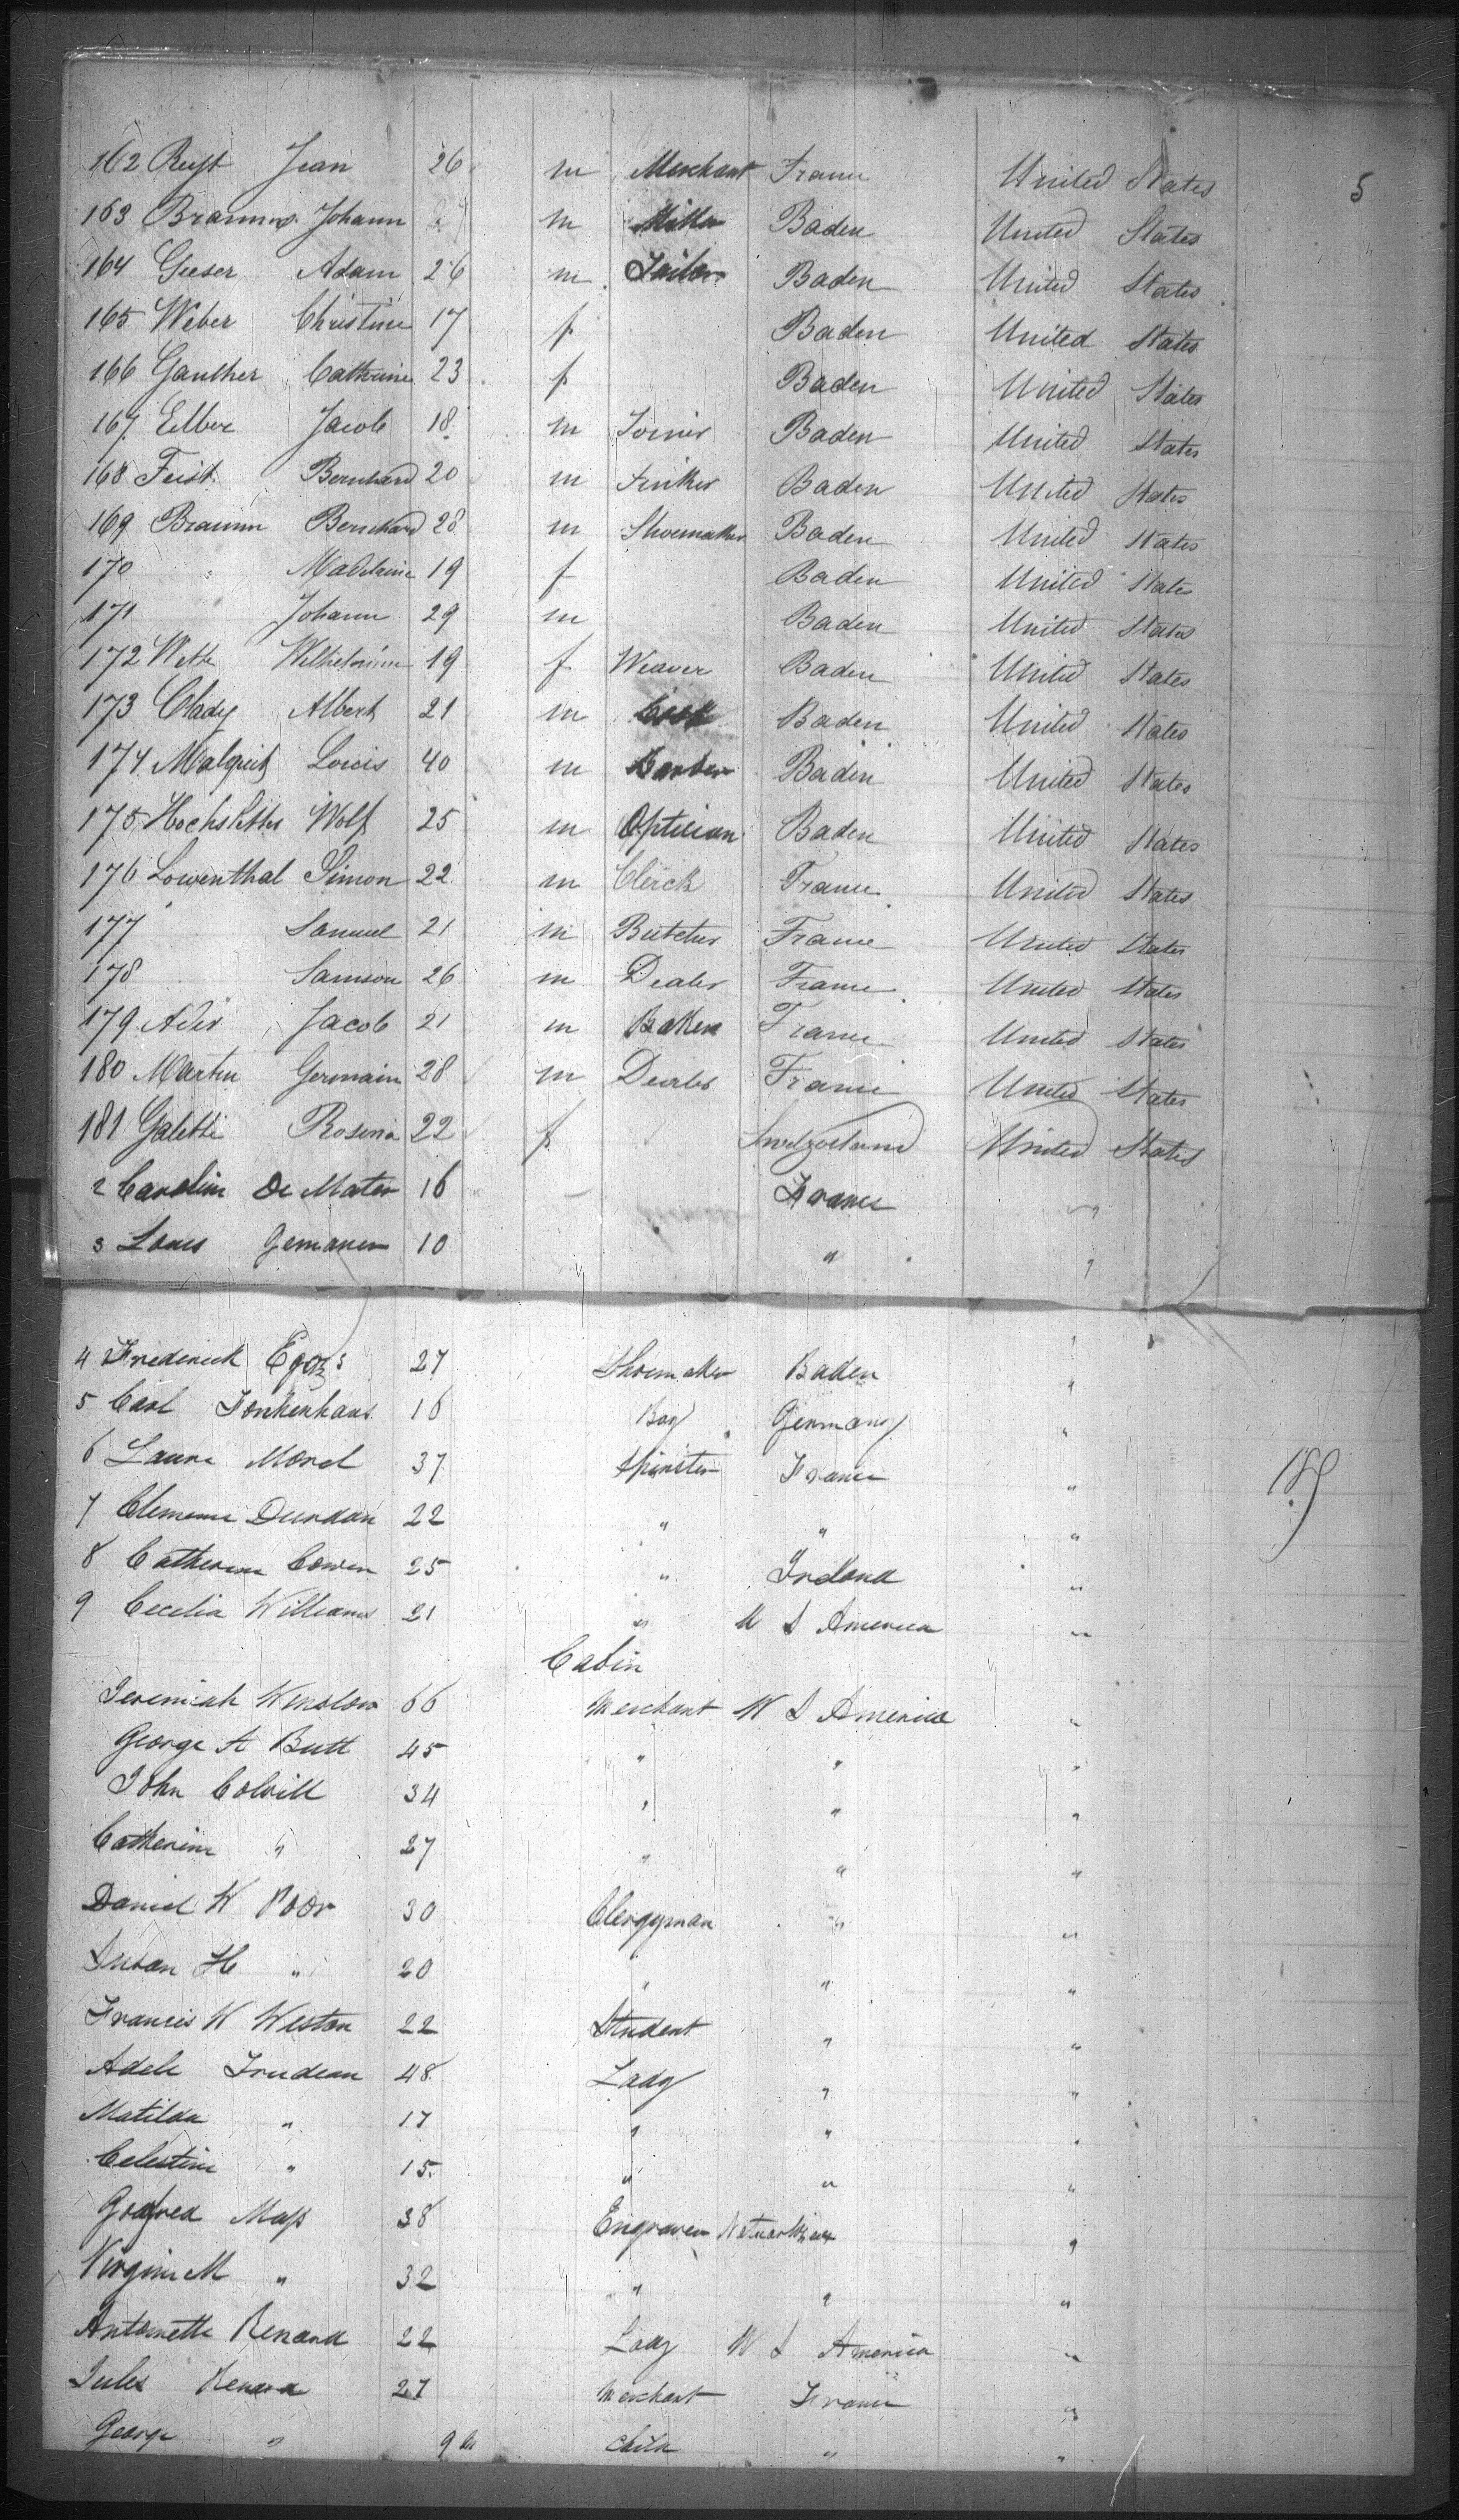 162 Rust Jean 26 m Merchant France United States 5
163 Johann m Miller Baden United States
164 Geeser Adam 26 m Tailor Baden United States
165 Weber Christine 17 f Baden United States
166 Ganther Catherine 23 f Baden United States
167 Jacob 18 m Joiner Baden United States
168 Feist Bernhard 20 m Baden United States
169 Braunn Bernhard 28 m Shoemaker Baden United States
170 " Madelaine 19 f Baden United State
171 Johann 29 m Baden United States
172 19 f Weaver Baden United States
173 Clady Albert 21 m Baden United States
174 Louis 40 m Barber Baden United States
175 Wolf 25 m Optician Baden United States
176 Lowenthal Simon 22 m Clerck France United States
177 " Samuel 21 m Butcher France United States
178 Samson 26 m Dealer France United States
179 Adir Jacob 21 m Baker France United States
180 Martin Germain 28 m Dealer France United States
181 Galetti Rosina 22 f Switzerland United States
2 Caroline De Mater 16 France "
3 Louis 10 " "
4 Frederick 27 Shoemaker Baden "
5 Carl 16 Boy Germany "
6 Laura Morel 37 Spinster France "
7 Clemence 22 " " "
8 Catherine Cowen 25 " Ireland "
9 Cecilia Williams 21 " U S America "
Cabin
Jeremiah Winslow 66 Merchant U S America "
George A Butt 45 " " "
John Colvill 34 " " "
Catherine " 27 " " "
Daniel W Poor 30 Clergyman " "
Susan H " 20 " " "
Francis W Weston 22 Student " "
Adele Trudeau 48 Lady " "
Matilda " 17 " " "
Celestine " 15 " " "
38 Engraver "
Virginie M " 32 " " "
Antoinette Renard 22 Lady U S America "
Jules Renard 27 Merchant France "
George " 9 Child " "